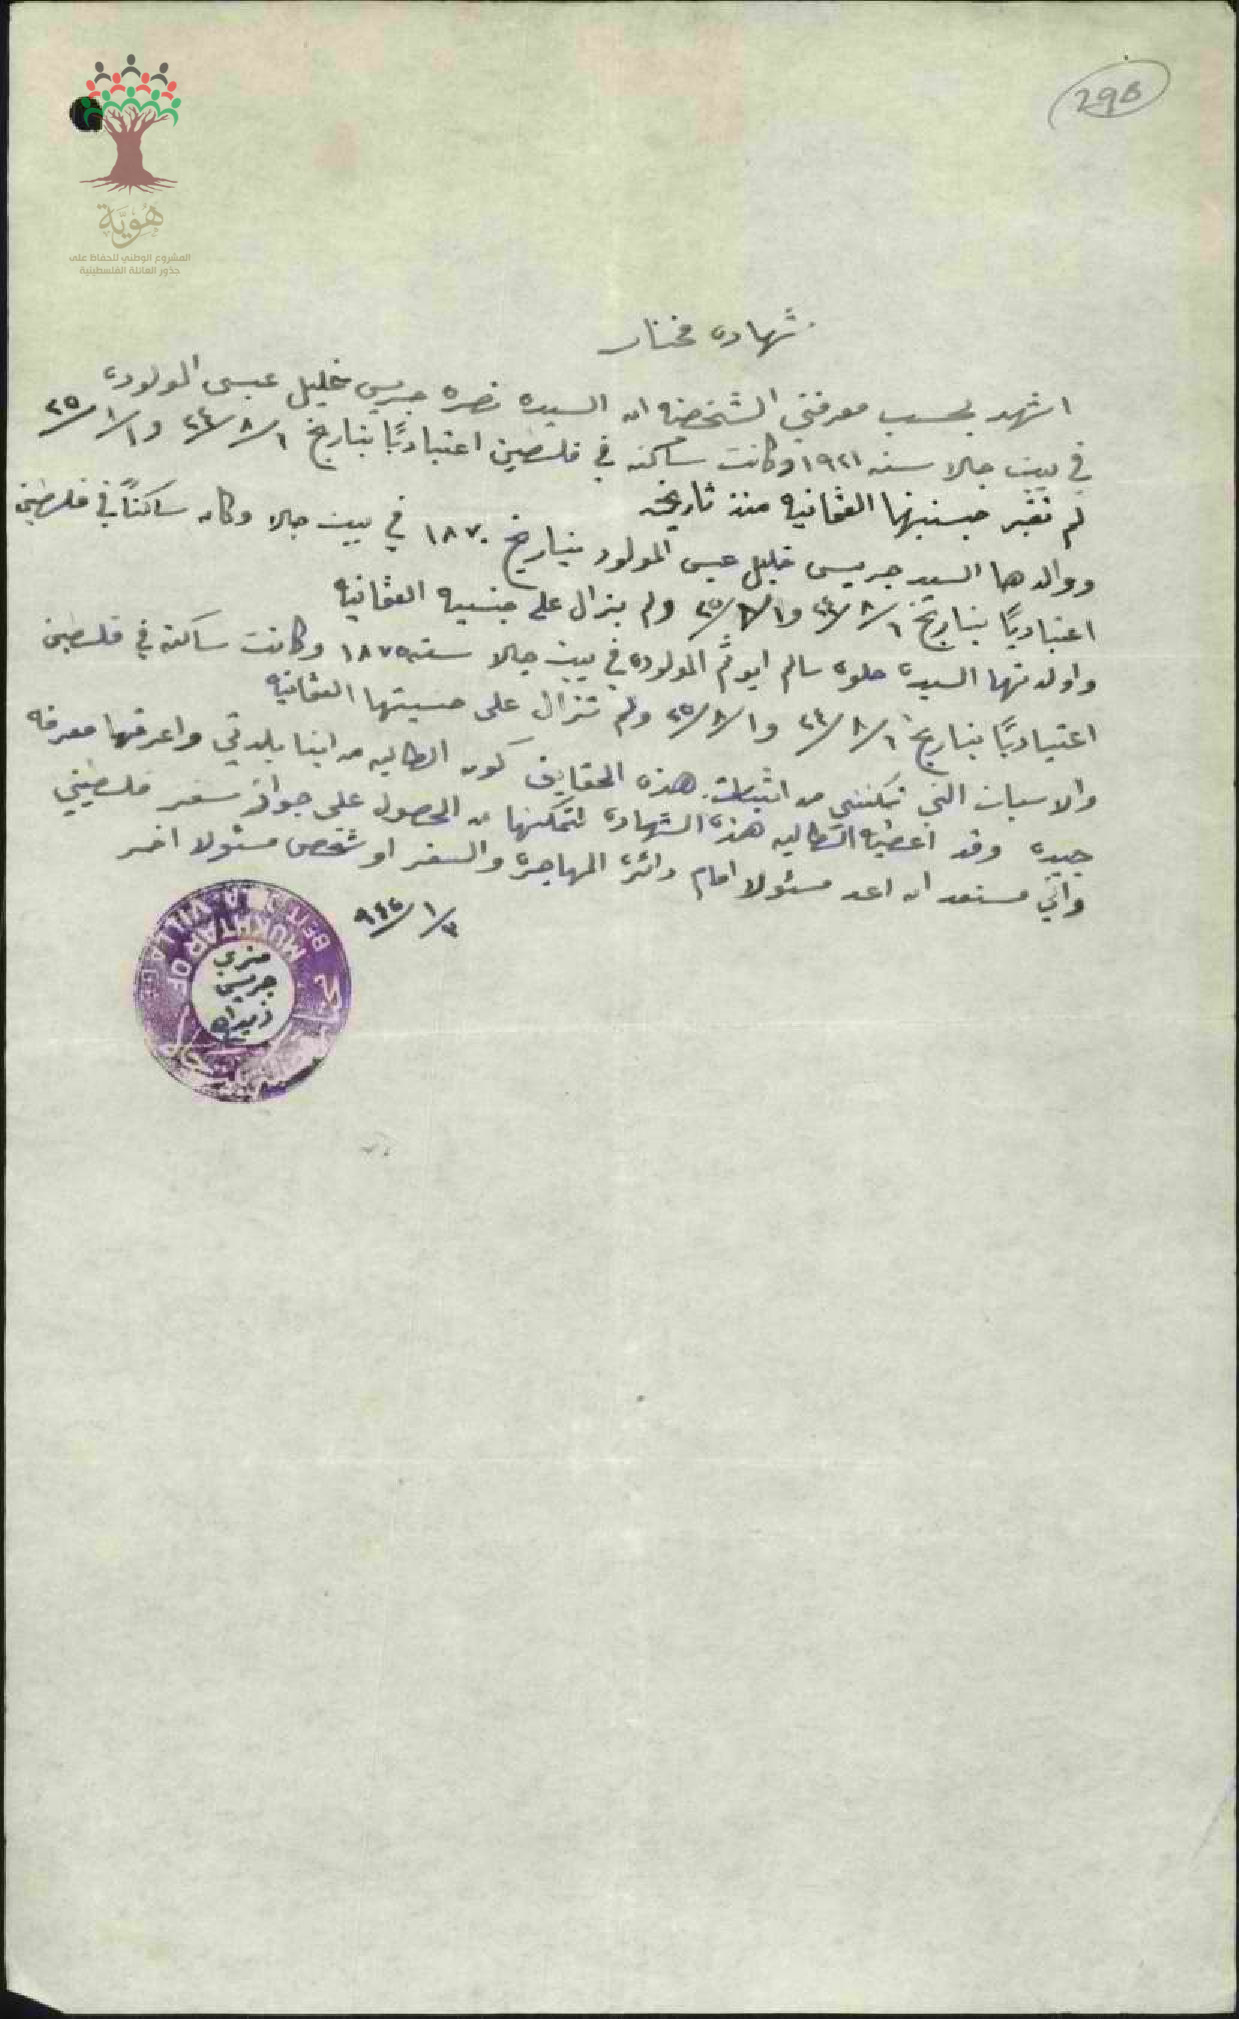 296
هُوِيَّة
المشروع الوطني للحفاظ على
جذور العائلة الفلسطينية
شهادة مختار
اشهد بحسب معرفتي الشخصيه ان السيده نصره جريس خليل عيسى المولودة
في بيت جالا سنه ١٩٢١ وكانت ساكنه في فلسطين اعتياديًا بتاريخ ٦/٨/٢٤ و١/٨/٢٥
لم تغير جنسيتها العثمانيه منذ تاريخه
ووالدها السيد جريس خليل عيسى المولود بتاريخ ١٨٧٠ في بيت جالا وكان ساكناً في فلسطين
اعتياديًا بتاريخ ٦/٨/٢٤ و١/٨/٢٥ ولم يزال على جنسيه العثمانيه
والدتها السيدة حلوه سالم المولودة في بيت جالا سنه ١٨٧٥ وكانت ساكنه في فلسطين
اعتياديًا بتاريخ ٦/٨/٢٤ و١/٨/٢٥ ولم تزال على جنسيتها العثمانيه
والاسباب التي تمكنني من اثبات هذه الحقايق كون الطالبه من ابنا بلدتي واعرفها معرفه
جيده وقد اعطيت الطالبه هذه الشهادة لتمكنها من الحصول على جواز سفر فلسطيني
واني مستعد ان اعد مسئولا امام دائرة المهاجرة والسفر او شخص مسئولا اخر
٣/١/٩٤٢
MUKHTAR OF
BEIT JALA VILLAGE
جريس
زيدان